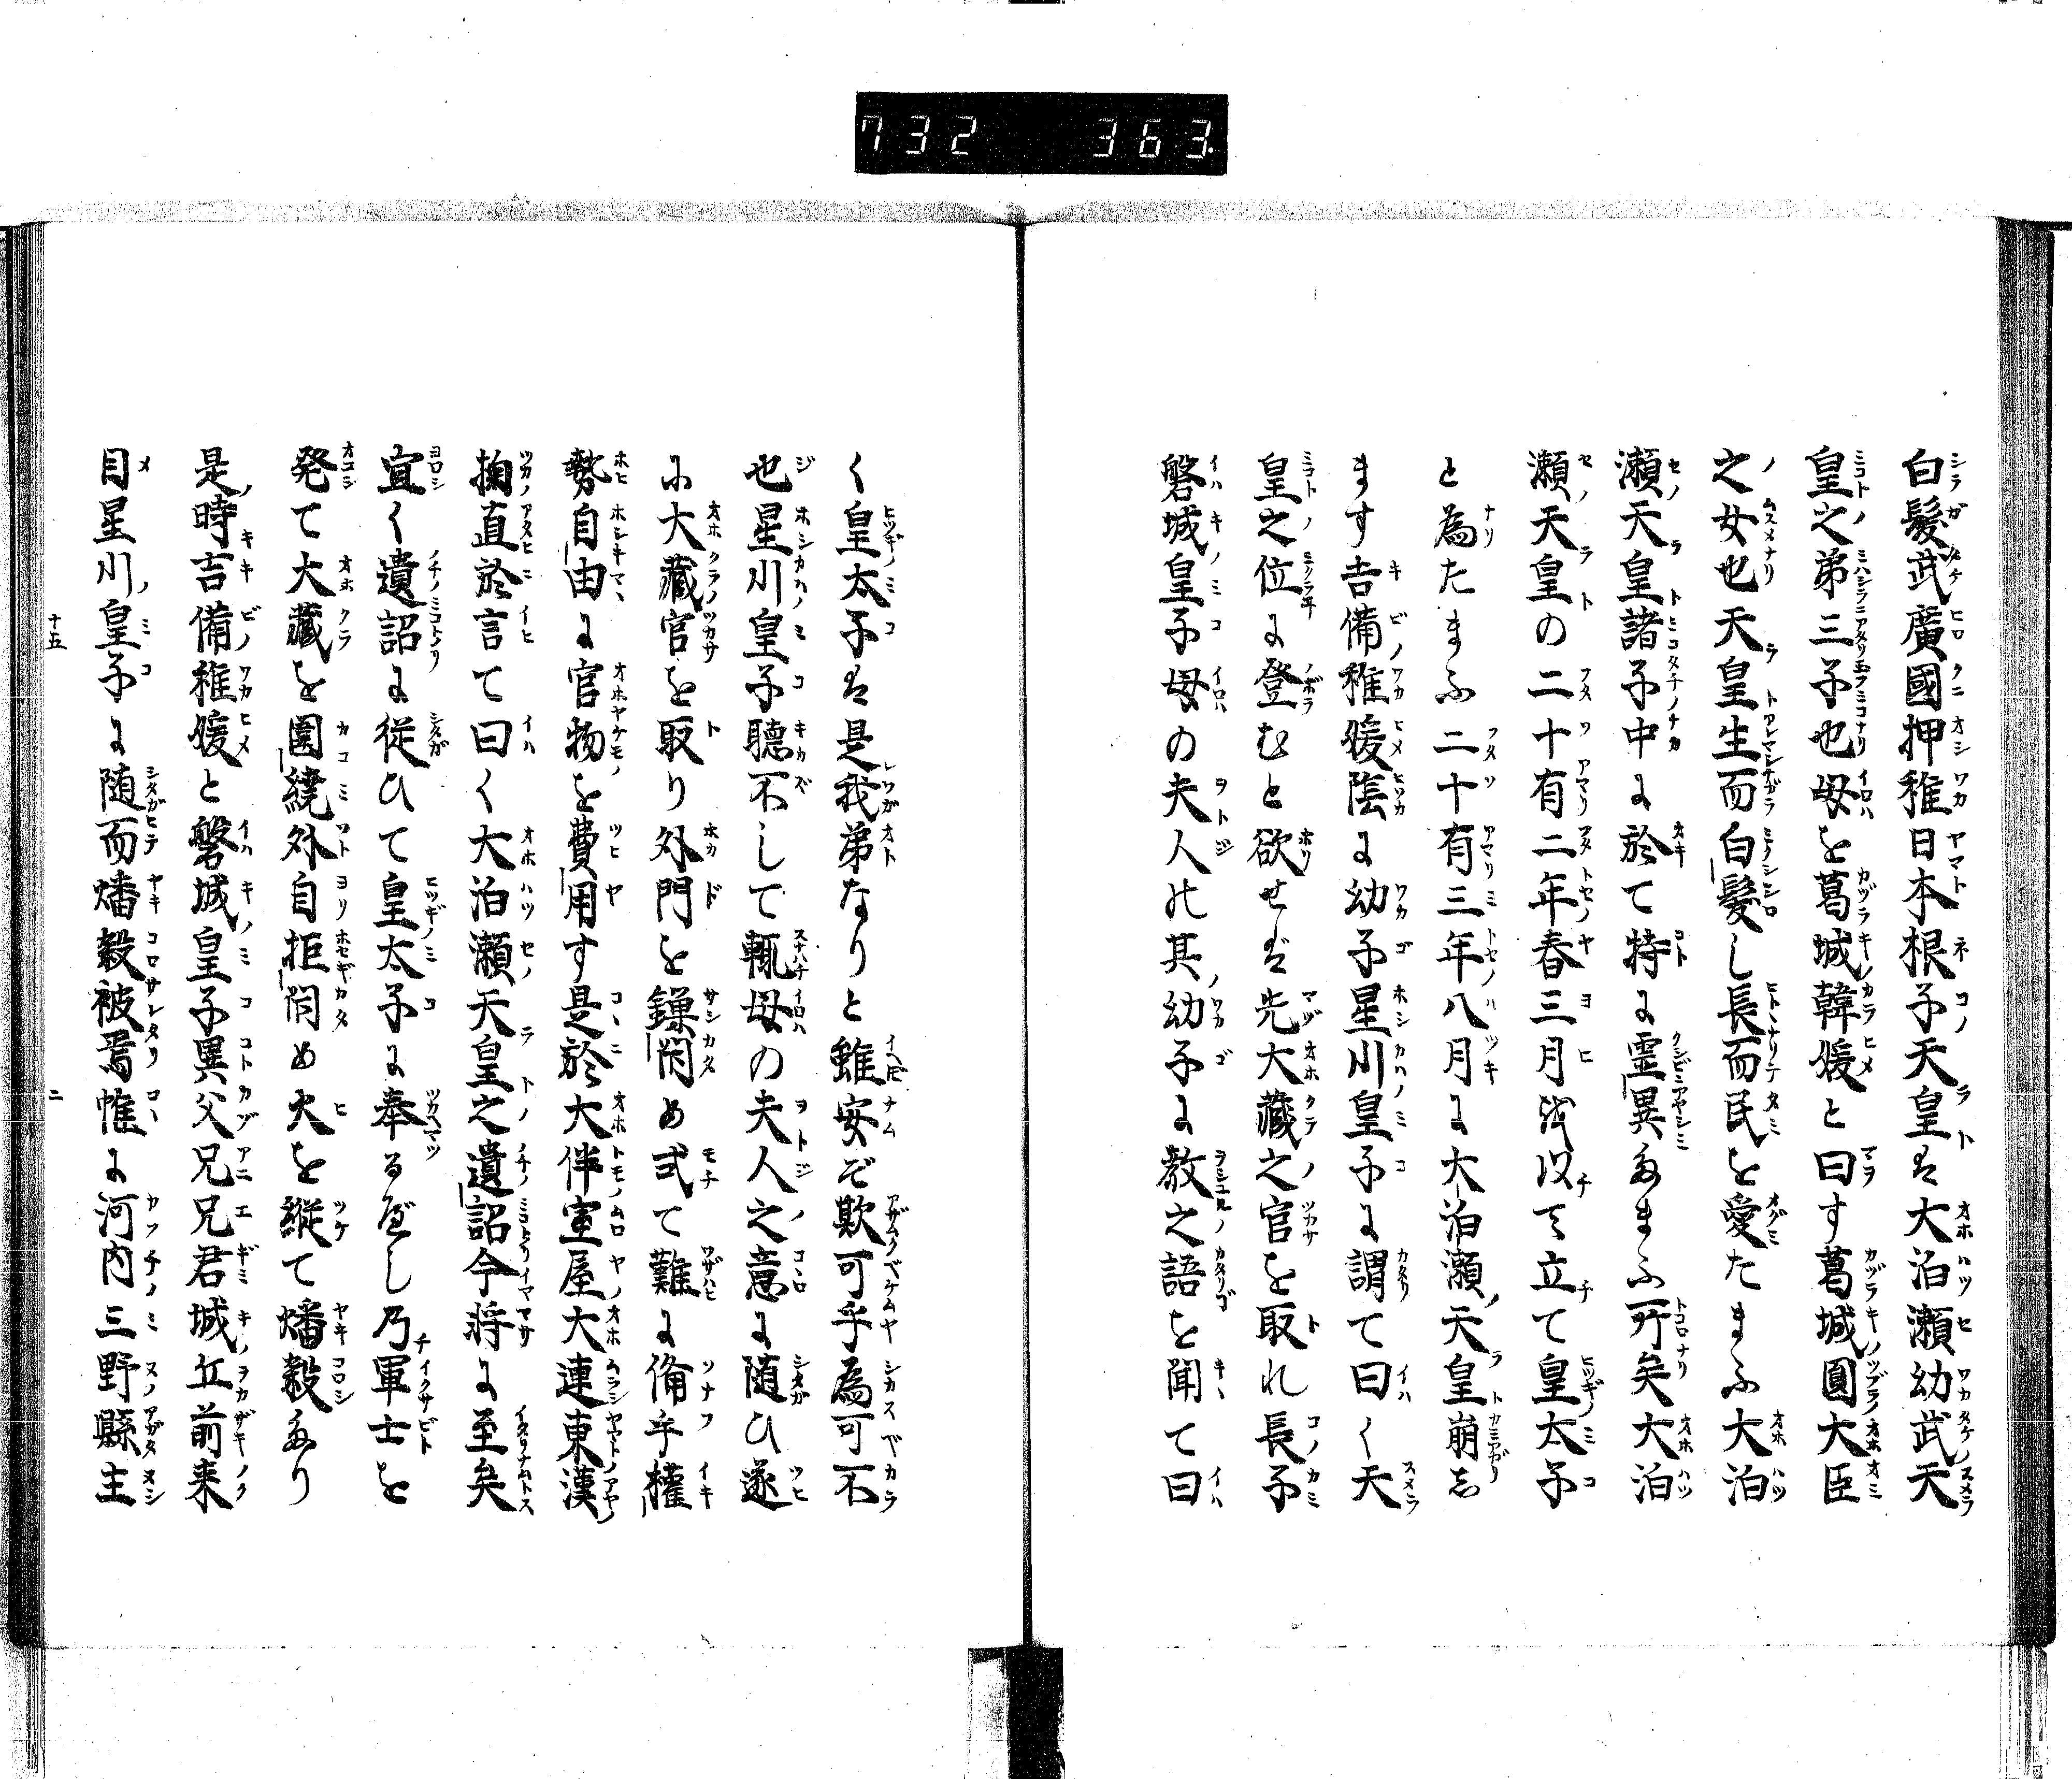 732 363
白髮武廣國押稚日本根子天皇は大泊瀬幼武天
皇之弟三子也母を葛城韓媛と曰す葛城圓大臣
之女也天皇生而白髮し長而民を愛たまふ大泊
瀬天皇諸子中に於て特に霊異たまふ所矣大泊
瀬天皇の二十有二年春三月 立て皇太子
と為たまふ二十有三年八月に大泊瀬天皇崩し
ます吉備稚媛陰に幼子星川皇子に謂て曰く天
皇之位に登むと欲せば先大藏之官を取れ長子
磐城皇子母の夫人の其幼子に教之語を聞て曰
く皇太子は是我弟なりと雖安ぞ欺可乎為可不
也星川皇子聴不して輙母の夫人之意に随ひ遂
に大藏官を取り外門を鏁閇め式て難に備乎權
勢自由に官物を費用す是於大伴室屋大連東漢
掬直於言て曰く大泊瀬天皇之遺詔今将に至矣
宜く遺詔に従ひて皇太子に奉るべし乃軍士を
発て大藏を圍繞外自拒閇め火を縦て燔殺たり
是時吉備稚媛と磐城皇子異父兄兄君城丘前来
目星川皇子に随而燔殺被焉惟に河内三野縣主
十五
二